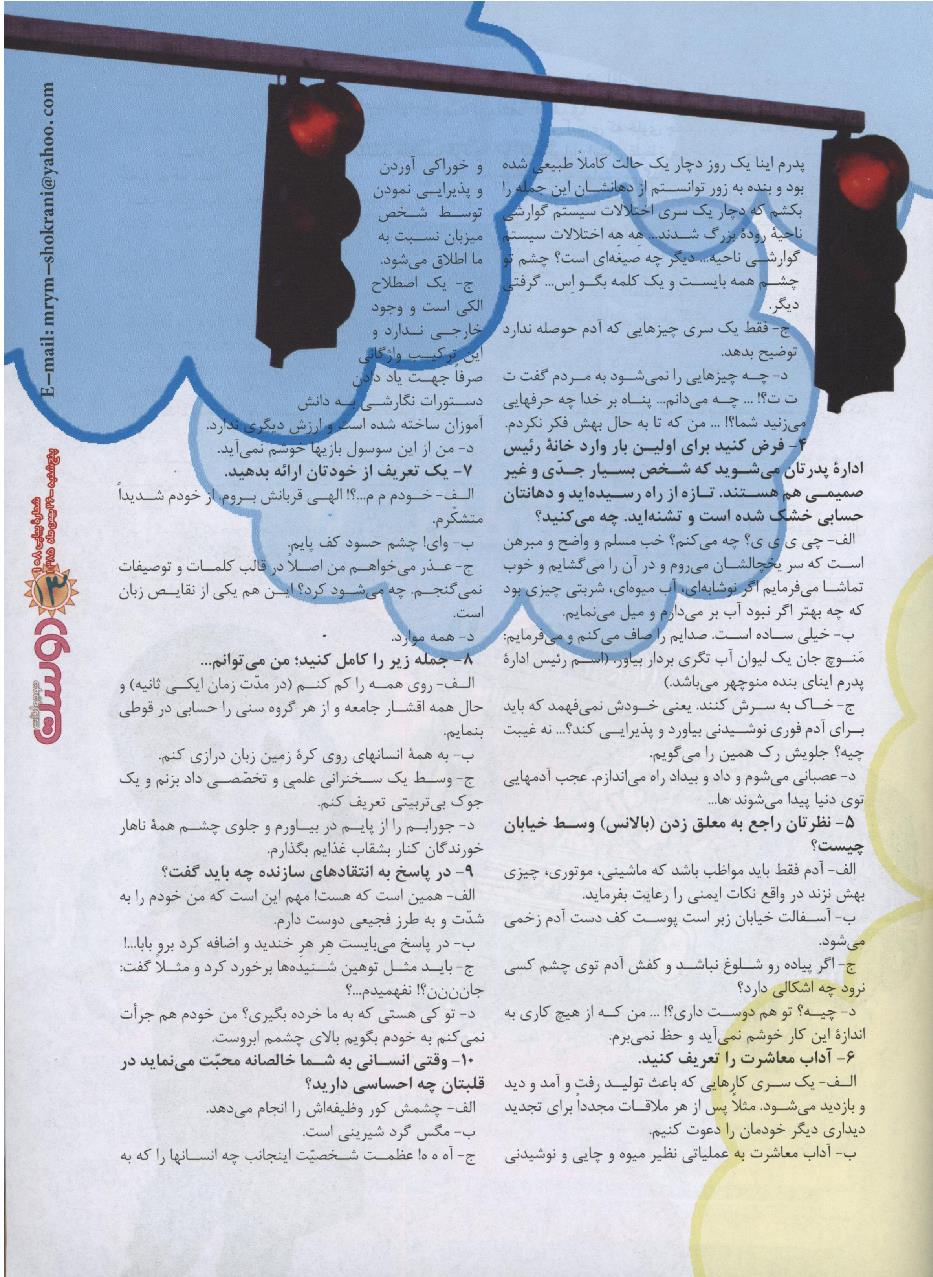 پدرم اینا یک روز دچار یک حالت کاملاً طبیعی شده
بود و بنده به زور توانستم از دهانشان این جمله را
بکشم که دچار یک سری اختلالات سیستم گوارشی
ناحیهٔ رودهٔ بزرگ شدند... هِه هِه اختلالات سیستم
گوارشی ناحیه... دیگر چه صیغه‌ای است؟ چشم تو
چشم همه بایست و یک کلمه بگو اِس... گرفتی
دیگر.
ج- فقط یک سری چیزهایی که آدم حوصله ندارد
توضیح بدهد.
د- چه چیزهایی را نمی‌شود به مردم گفت ت
ت ت؟! ... چه می‌دانم... پناه بر خدا چه حرفهایی
می‌زنید شما؟! ... من که تا به حال بهش فکر نکردم.
۴- فرض کنید برای اولین بار وارد خانهٔ رئیس
ادارهٔ پدرتان می‌شوید که شخص بسیار جدّی و غیر
صمیمی هم هستند. تازه از راه رسیده‌اید و دهانتان
حسابی خشک شده است و تشنه‌اید. چه می‌کنید؟
الف- چی ی ی ی؟ چه می‌کنم؟ خب مسلم و واضح و مبرهن
است که سر یخچالشان می‌روم و در آن را می‌گشایم و خوب
تماشا می‌فرمایم اگر نوشابه‌ای، آب میوه‌ای، شربتی چیزی بود
که چه بهتر اگر نبود آب بر می‌دارم و میل می‌نمایم.
ب- خیلی ساده است. صدایم را صاف می‌کنم و می‌فرمایم:
مَنوچ جان یک لیوان آب تگری بردار بیاور. (اسم رئیس ادارهٔ
پدرم اینای بنده منوچهر می‌باشد.)
ج- خاک به سرش کنند. یعنی خودش نمی‌فهمد که باید
برای آدم فوری نوشیدنی بیاورد و پذیرایی کند؟... نه غیبت
چیه؟ جلویش رک همین را می‌گویم.
د- عصبانی می‌شوم و داد و بیداد راه می‌اندازم. عجب آدمهایی
توی دنیا پیدا می‌شوند ها...
۵- نظرتان راجع به معلق زدن (بالانس) وسط خیابان
چیست؟
الف- آدم فقط باید مواظب باشد که ماشینی، موتوری، چیزی
بهش نزند در واقع نکات ایمنی را رعایت بفرماید.
ب- آسفالت خیابان زبر است پوست کف دست آدم زخمی
می‌شود.
ج- اگر پیاده رو شلوغ نباشد و کفش آدم توی چشم کسی
نرود چه اشکالی دارد؟
د- چیه؟ تو هم دوست داری؟! ... من که از هیچ کاری به
اندازهٔ این کار خوشم نمی‌آید و حظ نمی‌برم.
۶- آداب معاشرت را تعریف کنید.
الف- یک سری کارهایی که باعث تولید رفت و آمد و دید
و بازدید می‌شود. مثلاً پس از هر ملاقات مجدداً برای تجدید
دیداری دیگر خودمان را دعوت کنیم.
ب- آداب معاشرت به عملیاتی نظیر میوه و چایی و نوشیدنی
و خوراکی آوردن
و پذیرایی نمودن
توسط شخص
میزبان نسبت به
ما اطلاق می‌شود.
ج- یک اصطلاح
الکی است و وجود
خارجی ندارد و
این ترکیب واژگانی
صرفاً جهت یاد دادن
دستورات نگارشی به دانش
آموزان ساخته شده است و ارزش دیگری ندارد.
د- من از این سوسول بازیها خوشم نمی‌آید.
۷- یک تعریف از خودتان ارائه بدهید.
الف- خودم م م...؟! الهی قربانش بروم. از خودم شدیداً
متشکّرم.
ب- وای! چشم حسود کف پایم.
ج- عذر می‌خواهم من اصلاً در قالب کلمات و توصیفات
نمی‌گنجم. چه می‌شود کرد؟ این هم یکی از نقایص زبان
است.
د- همه موارد.
۸- جمله زیر را کامل کنید؛ من می‌توانم...
الف- روی همه را کم کنم (در مدّت زمان ایکی ثانیه) و
حال همه اقشار جامعه و از هر گروه سنی را حسابی در قوطی
بنمایم.
ب- به همهٔ انسانهای روی کرهٔ زمین زبان درازی کنم.
ج- وسط یک سخنرانی علمی و تخصّصی داد بزنم و یک
جوک بی‌تربیتی تعریف کنم.
د- جورابم را از پایم در بیاورم و جلوی چشم همهٔ ناهار
خورندگان کنار بشقاب غذایم بگذارم.
۹- در پاسخ به انتقادهای سازنده چه باید گفت؟
الف- همین است که هست! مهم این است که من خودم را به
شدّت و به طرز فجیعی دوست دارم.
ب- در پاسخ می‌بایست هِر هِر خندید و اضافه کرد برو بابا...!
ج- باید مثل توهین شنیده‌ها برخورد کرد و مثلاً گفت:
جان‌ن‌ن‌ن؟! نفهمیدم...؟
د- تو کی هستی که به ما خرده بگیری؟ من خودم هم جرأت
نمی‌کنم به خودم بگویم بالای چشمم ابروست.
۱۰- وقتی انسانی به شما خالصانه محبّت می‌نماید در
قلبتان چه احساسی دارید؟
الف- چشمش کور وظیفه‌اش را انجام می‌دهد.
ب- مگس گرد شیرینی است.
ج- آه ه ه! عظمت شخصیّت اینجانب چه انسانها را که به
E-mail: mrym-shokrani@yahoo.com
شمارهٔ پیاپی ۱۰۸
پنج‌شنبه - ۲۶ بهمن ماه ۱۳۸۵
۱۳
دوست